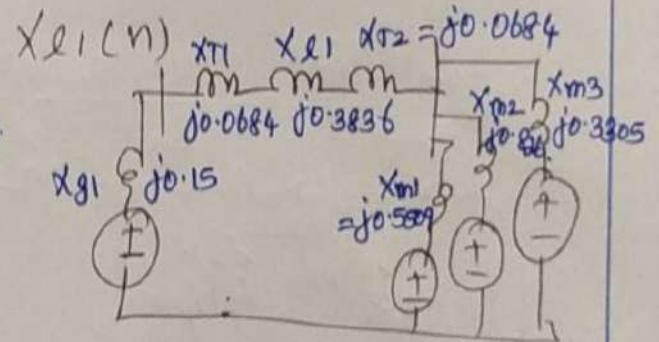 Xl1(n)
XT1 Xl1 XT2 = j0.0684
j0.0684 j0.3836
Xm3
Xm2
j0.3305
Xg1 j0.15
Xm1